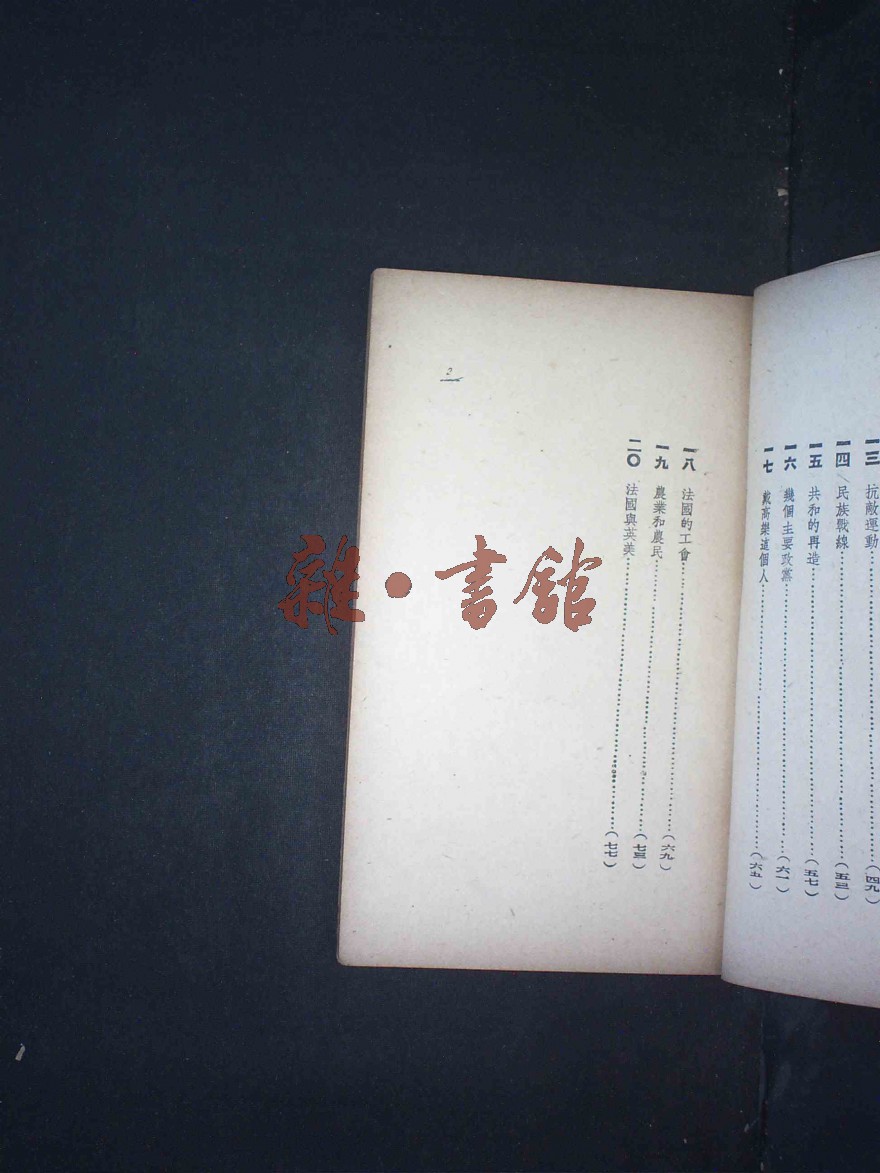 一三 抗敵運動……(四九)
一四 民族戰線……(五三)
一五 共和的再造……(五七)
一六 幾個主要政黨……(六一)
一七 戴高樂這個人……(六五)
2
一八 法國的工會……(六九)
一九 農業和農民……(七三)
二〇 法國與英美……(七七)
雜·書館